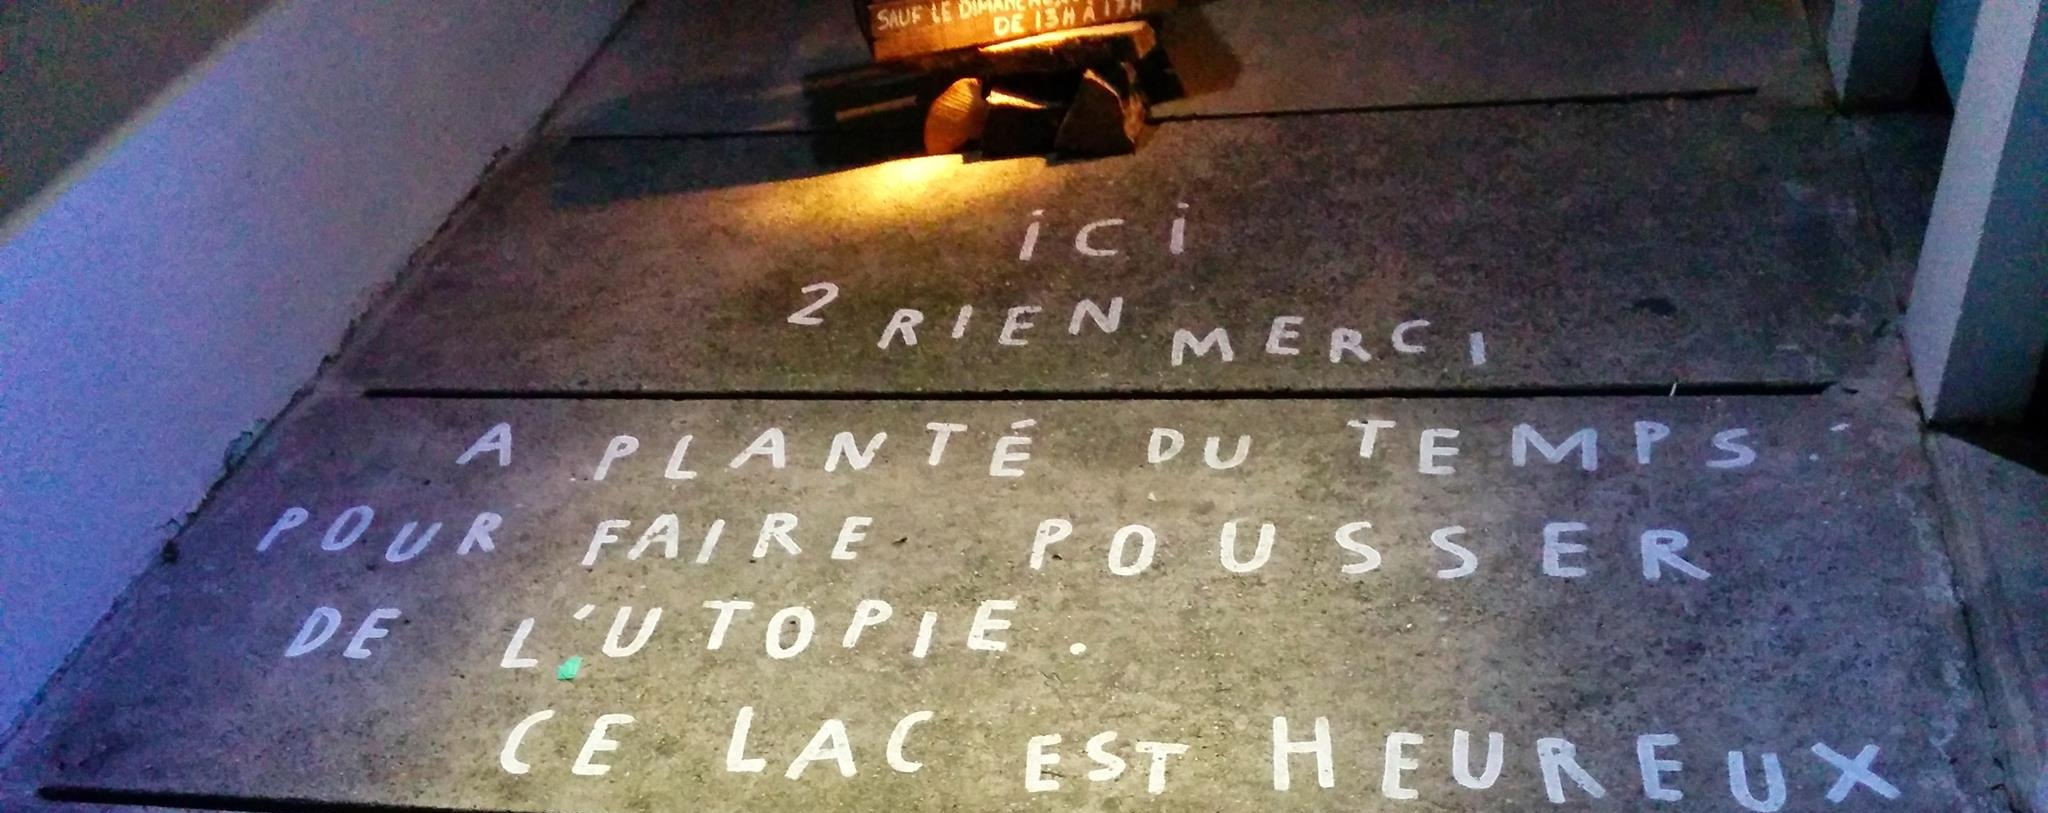 SAUF LE DIMANCHE
DE 13H À 17H
iCi
2 RIEN MERCI
A PLANTÉ DU TEMPS
POUR FAIRE POUSSER
DE L'UTOPIE.
CE LAC EST HEUREUX